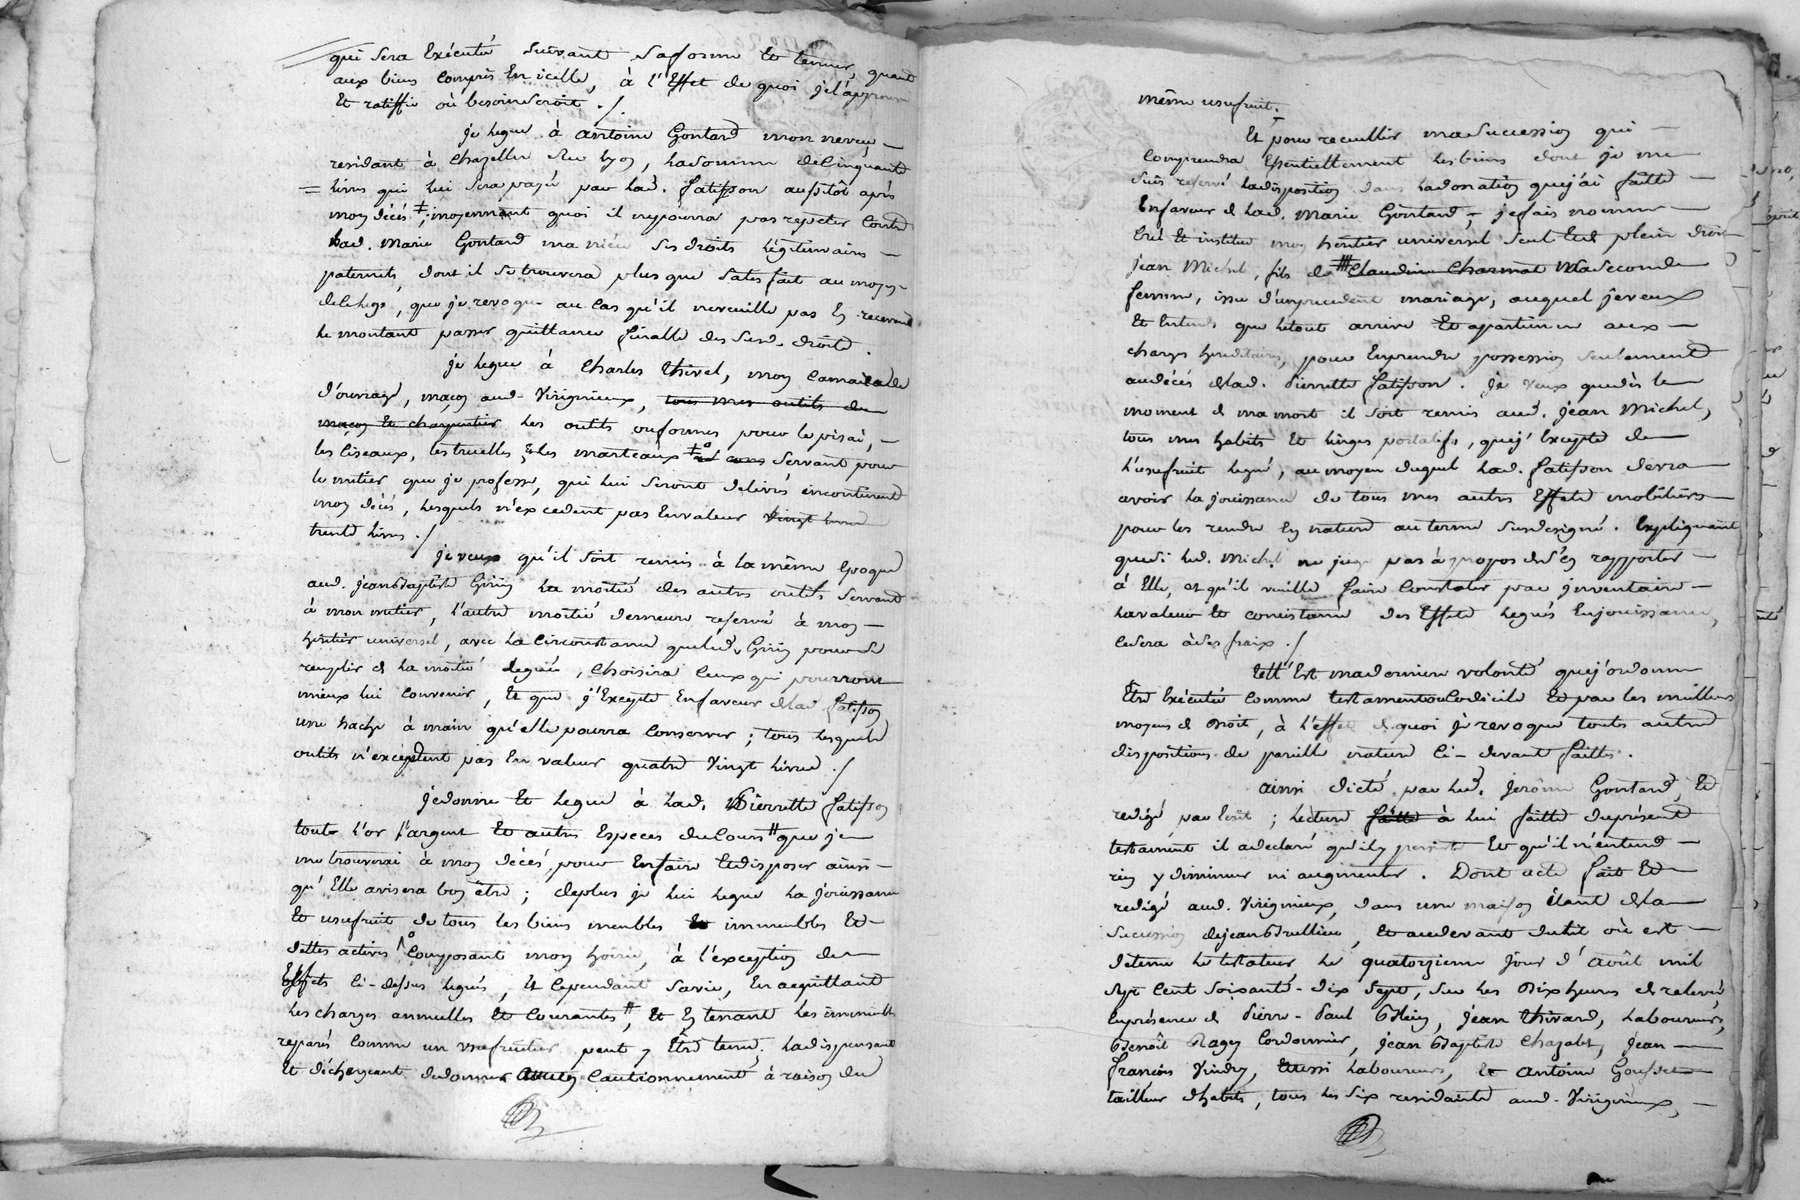 qui sera Exécuté suivant sa forme et teneur, quant
aux biens compris En icelle, à l'Effet de quoi je l'approuve
Et ratiffie où besoin seroit ./
je legue à antoine Gontard mon neveu,
residant à chazelle sur lyon, la somme de Cinquante
livres qui lui sera payée par lad. fatisson aussitôt après
mon décés ‡, moyennant quoi il ne pourra pas repeter Contre
lad. Marie Gontard ma niéce ses droits légitimaires
paternels, dont il se trouvera plus que satisfait au moyen
de ce legs, que je revoque au cas qu'il ne veuille pas En recevant
le montant passer quittance finalle des susd. droits.
je legue à Charles thivel, mon Camarade
d'ouvrage, maçon aud. Virigneux, tous mes outils de
maçon et charpentier les outils ou formes pour le pisai,
les Ciseaux, les truelles, & les marteaux ‡ servant pour
le métier que je professe, qui lui seront delivrés incontinent
mon décés, lesquels n'excedent pas En valeur vingt livres
trente livres ./
je veux qu'il soit remis à la même Epoque
aud. jean Baptiste Girin la moitié des autres outils servant
à mon métier, l'autre moitié demeure reservée à mon
héritier universel, avec la Circonstance que led. Girin pour se
remplir de la moitié leguée, choisira Ceux qui pourront
mieux lui Convenir, Et que j'Excepte En faveur de lad fatisson
une hache à main qu'elle pourra Conserver ; tous lesquels
outils n'excédent pas En valeur quatre Vingt livres ./
je donne Et legue à lad. Pierrette fatisson
tout l'or l'argent Et autres Especes du Cours # que je
me trouverai à mon décés, pour En faire Et disposer ainsi
qu'Elle avisera bon être ; de plus je lui legue la jouissance
Et usufruit de tous les biens meubles Et immeubles Et
dettes actives Composant mon hoirie, à l'exception des
Effets Ci-dessus legués, Et Cependant sa vie, En acquittant
les charges annuelles Et Courantes #, Et En tenant les immeubles
reparés Comme un usufruitier peut y Être tenu. la dispensant
Et déchargeant de donner Cautionnement à raison du
même usufruit.
Et pour recueillir ma succession qui
Comprendra Essentiellement les biens dont je me
suis reservé la disposition dans la donation que j'ai faitte
En faveur de lad. Marie Gontard, je fais nomme
Créé Et institue mon héritier universel seul Et de plein droit
jean Michel, fils de # Claudine Charmat Ma seconde
femme, issu d'un precedent mariage, auquel je veux
Et Entends que le tout arrive Et apartienne aux
charges hereditaires, pour En prendre possession seulement
au décés de lad. Pierrette fatisson. Je veux que dès le
moment de ma mort il soit remis aud. jean Michel,
tous mes habits Et linges portatifs, que j'Excepte de
l'usufruit legué, au moyen duquel lad. fatisson devra
avoir la jouissance de tous mes autres Effets mobiliers
pour les rendre En nature au terme susdesigné. Expliquant
que si led. Michel ne juge pas à propos de s'En rapporter
à Elle, et qu'il veuille faire Constater par jnventaire
la valeur Et consistance des Effets legués En jouissance,
ce sera à ses fraix ./
tell' Est ma derniere volonté que j'ordonne
Être Exécutée comme testament ou Codicile Et par les meilleurs
moyens de droit, à l'effet de quoi je revoque touts autres
dispositions de pareille nature Ci-devant faittes.
ainsi dicté par led. Jerôme Gontard, Et
redigé par Ecrit ; lécture faitte à lui faitte du présent
testament il a declaré qu'il y persiste Et qu'il n'entend
rien y diminuer ni augmenter. Dont acte fait Et
redigé aud. Virigneux, dans une maison étant de la
succession de jean Brullieu, Et au devant du lit où est
détenu le testateur le quatorzieme jour d'août mil
sept Cent soixante-dix sept, sur les dix heures de relevée,
En présence de Pierre-Paul Blein, jean thivard, laboureurs,
Benoît Ragey Cordonnier, jean Baptiste Chazalet, jean
françois Vindry, aussi laboureurs, Et antoine Gousset
tailleur d'habits, tous les six residants aud. Virigneux,